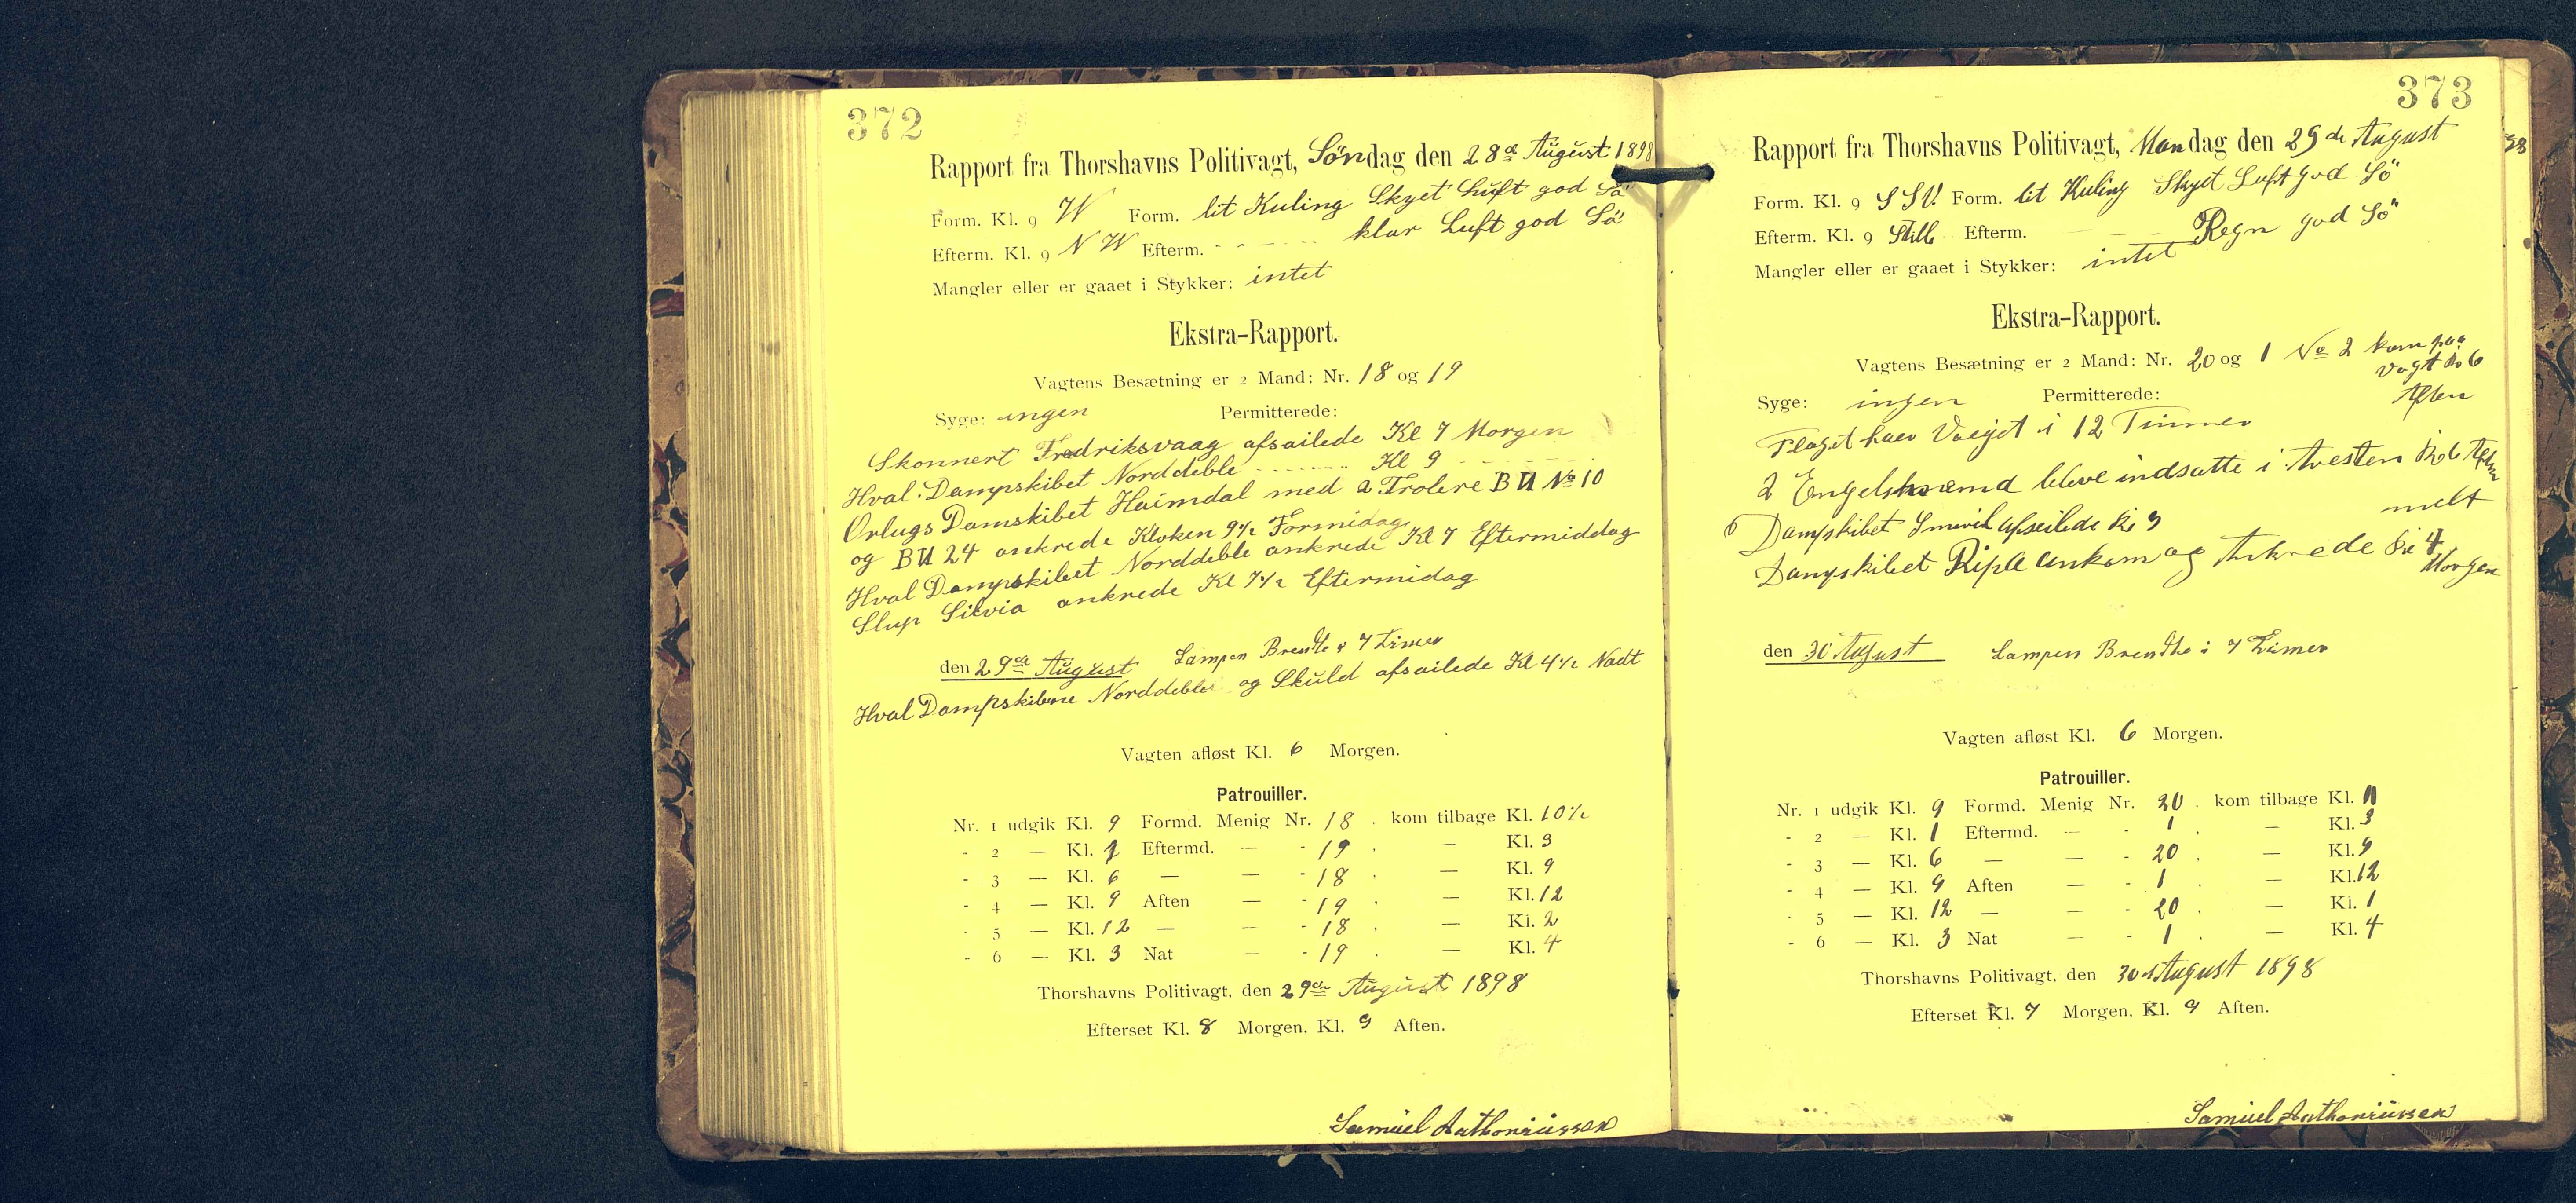 372
Rapport fra Thorshavns Politivagt, Söndag den 28de August 1898
Form. Kl. 9 W Form. lit Kuling Skyet Luft god Sö
Efterm. Kl. 9 N W Efterm. - - - - - klar Luft god Sö
Mangler eller er gaaet i Stykker: intet
Ekstra-Rapport.
Vagtens Besætning er 2 Mand: Nr. 18 og 19
Syge: ingen Permitterede:
Skonnert Fredriksvaag afsailede Kl 7 Morgen
Hval Dampskibet Norddeble - - - - Kl 9 - - - -
Orlugs Damskibet Haimdal med 2 Trolere B U No 10
og B U 24 ankrede Kloken 9½ Formidag
Hval Dampskibet Norddeble ankrede Kl 7 Eftermiddag
Slup Silvia ankrede Kl 7½ Eftermidag
den 29de August Lampen Brendte i 7 Timer
Hval Dampskibene Norddeble og Skuld afsailede Kl 4½ Nadt
Vagten afløst Kl. 6 Morgen.
Patrouiller.
Nr. 1 udgik Kl. 9 Formd. Menig Nr. 18 . kom tilbage Kl. 10½
- 2 — Kl. 1 Eftermd. — - 19 . — Kl. 3
- 3 — Kl. 6 — — - 18 . — Kl. 9
- 4 — Kl. 9 Aften — - 19 . — Kl. 12
- 5 — Kl. 12 — — - 18 . — Kl. 2
- 6 — Kl. 3 Nat — - 19 . — Kl. 4
Thorshavns Politivagt, den 29de August 1898
Efterset Kl. 8 Morgen, Kl. 9 Aften.
Samuel Anthoniussen
373
Rapport fra Thorshavns Politivagt, Mandag den 29de August 98
Form. Kl. 9 S S V. Form. lit Kuling Skyet Luft god Sö
Efterm. Kl. 9 Stille Efterm. — — — Regn god Sö
Mangler eller er gaaet i Stykker: intet
Ekstra-Rapport.
Vagtens Besætning er 2 Mand: Nr. 20 og 1 No 2 kom paa
Vagt Kl 6
Aften
Syge: ingen Permitterede:
Flaget haer Vaeget i 12 Timer
2 Engelskmænd bleve indsatte i Aresten Kl 6 Aften
Dampskibet Smiril afseilede Kl 9
Dampskibet Ripa ankom og Ankrede Kl 4
Morgen
den 30 August Lampen Brendte i 7 Timer
Vagten afløst Kl. 6 Morgen.
Patrouiller.
Nr. 1 udgik Kl. 9 Formd. Menig Nr. 20 . kom tilbage Kl. 11
- 2 — Kl. 1 Eftermd. — - 1 . — Kl. 3
- 3 — Kl. 6 — — - 20 . — Kl. 9
- 4 — Kl. 9 Aften — - 1 . — Kl. 12
- 5 — Kl. 12 — — - 20 . — Kl. 1
- 6 — Kl. 3 Nat — - 1 . — Kl. 4
Thorshavns Politivagt, den 30 August 1898
Efterset Kl. 7 Morgen, Kl. 9 Aften.
Samuel Anthoniussen